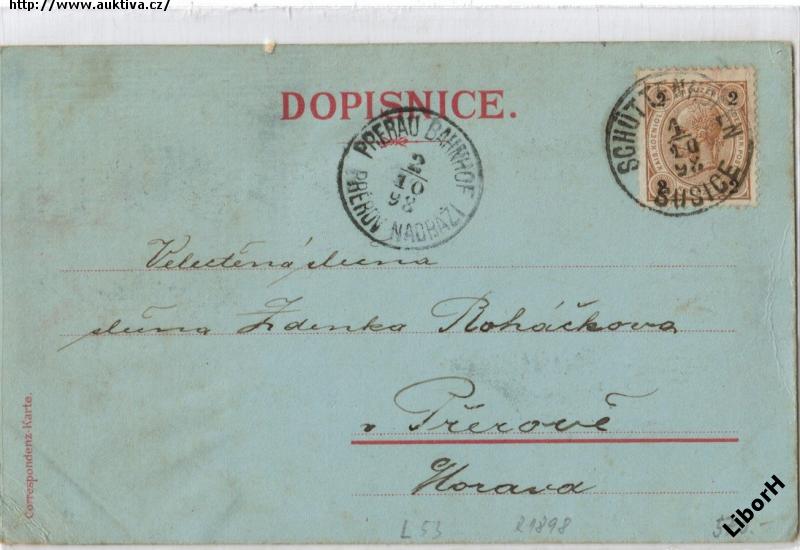 http://www.auktiva.cz/
DOPISNICE.
PRERAU BAHNHOF
2/10
98
PŘEROV NÁDRAŽÍ
SCHÜTTENHOFEN
1/10
98
SUŠICE
2 2
2
Velectěná slečna
slečna Zdenka Roháčkova
v Přerově
Morava
Correspondenz-Karte.
L 53
21898
LiborH